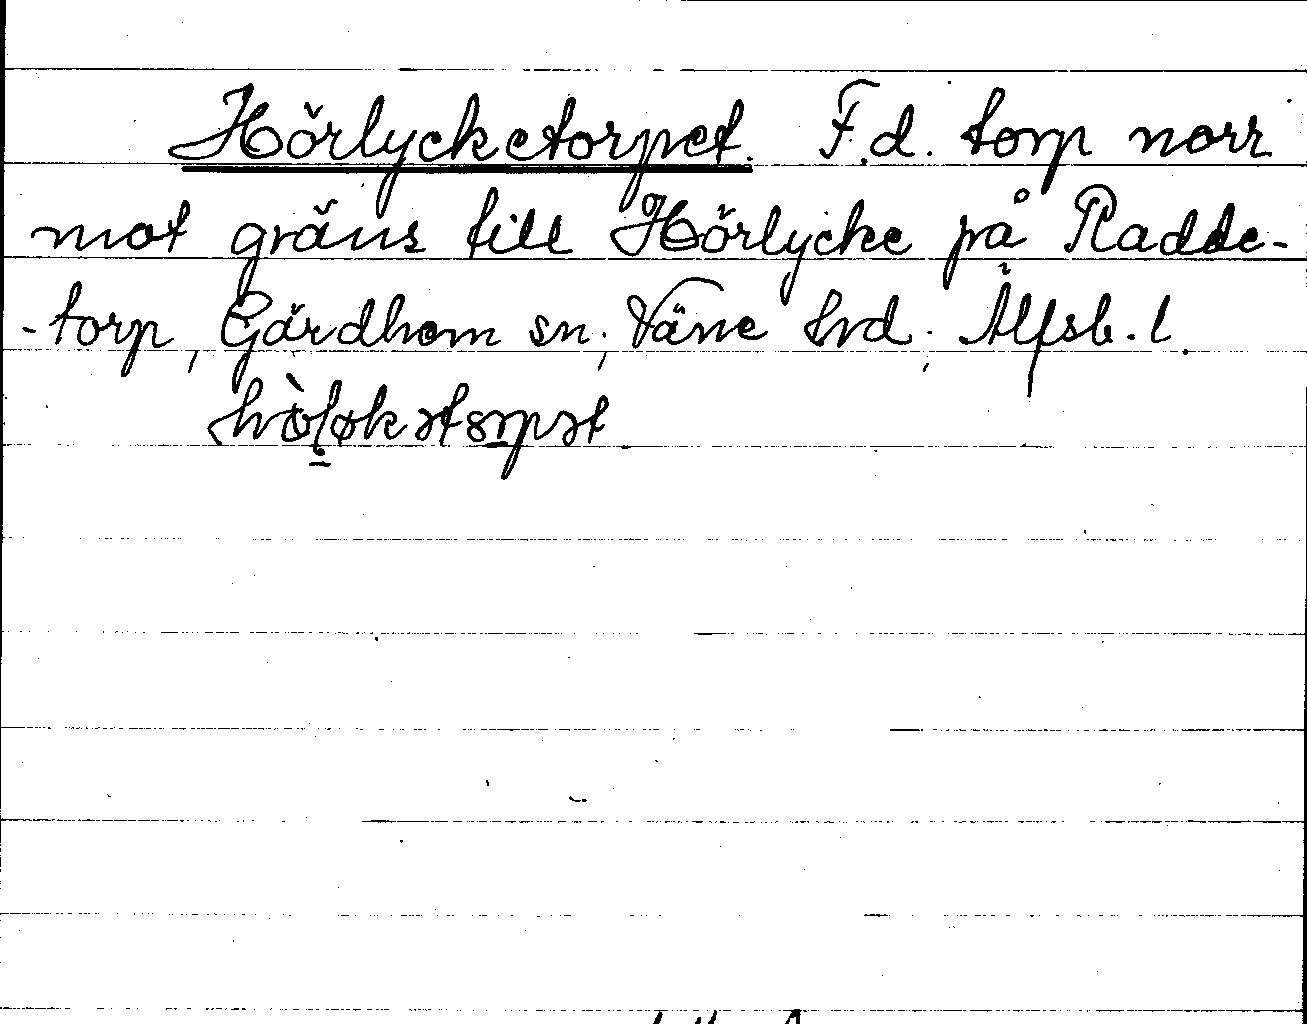 Hörlycketorpet. F.d. torp norr
mot gräns till Hörlycke på Radde-
-torp, Gärdhem sn, Väne hrd. Älfsb. l.